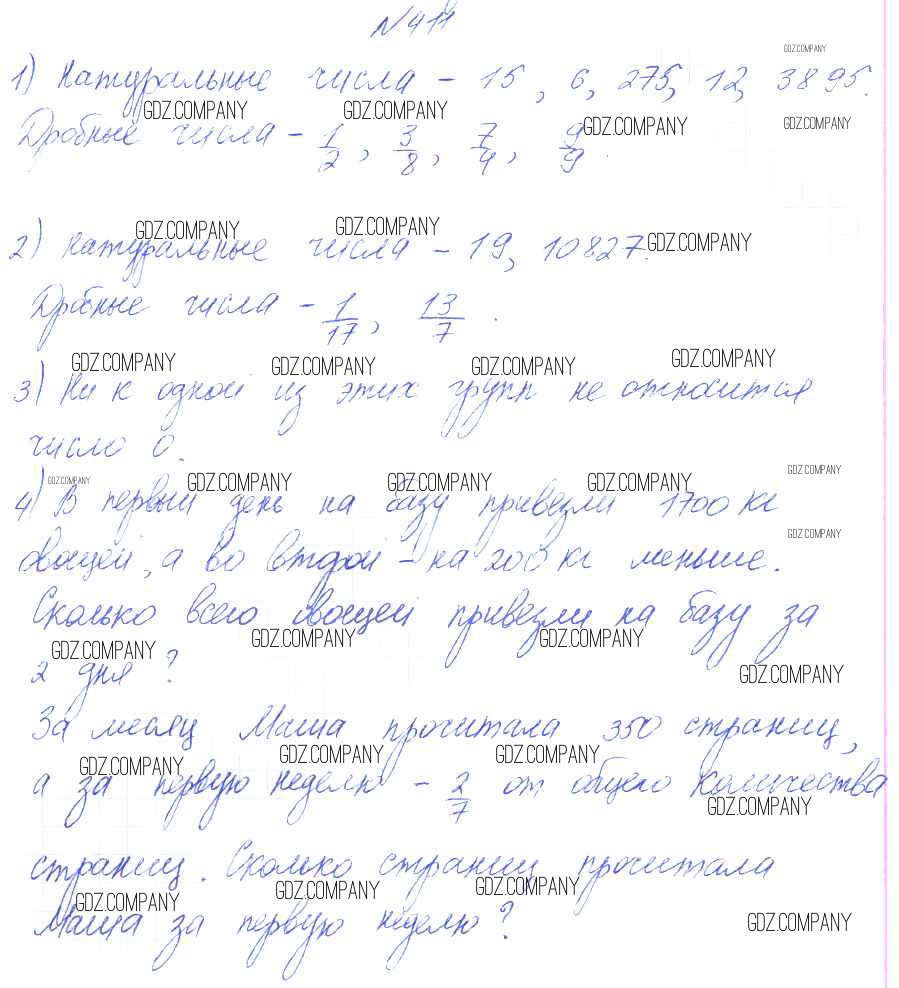 №411
GDZ.COMPANY
1) Натуральные числа – 15, 6, 275, 12, 3895.
GDZ.COMPANY GDZ.COMPANY GDZ.COMPANY GDZ.COMPANY
Дробные числа – 1/2, 3/8, 7/4, 9/9.
GDZ.COMPANY GDZ.COMPANY GDZ.COMPANY
2) Натуральные числа – 19, 10827.
Дробные числа – 1/17, 13/7.
GDZ.COMPANY GDZ.COMPANY GDZ.COMPANY GDZ.COMPANY
3) Ни к одной из этих групп не относится
число 0.
GDZ.COMPANY GDZ.COMPANY GDZ.COMPANY GDZ.COMPANY GDZ.COMPANY
4) В первый день на базу привезли 1700 кг
GDZ.COMPANY
овощей, а во второй – на 200 кг меньше.
Сколько всего овощей привезли на базу за
GDZ.COMPANY GDZ.COMPANY GDZ.COMPANY GDZ.COMPANY
2 дня?
За месяц Маша прочитала 350 страниц,
GDZ.COMPANY GDZ.COMPANY GDZ.COMPANY
а за первую неделю – 2/7 от общего количества
GDZ.COMPANY
страниц. Сколько страниц прочитала
GDZ.COMPANY GDZ.COMPANY GDZ.COMPANY GDZ.COMPANY
Маша за первую неделю?